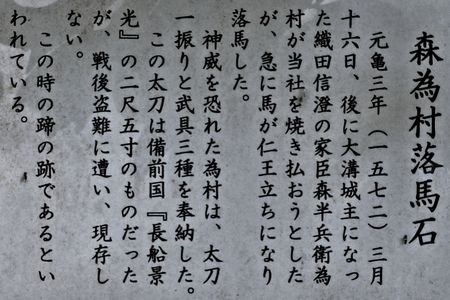 森為村落馬石
元亀三年(一五七二)三月
十六日、後に大溝城主になっ
た織田信澄の家臣森半兵衛為
村が当社を焼き払おうとした
が、急に馬が仁王立ちになり
落馬した。
神威を恐れた為村は、太刀
一振りと武具三種を奉納した。
この太刀は備前国『長船景
光』の二尺五寸のものだった
が、戦後盗難に遭い、現存し
ない。
この時の蹄の跡であるとい
われている。